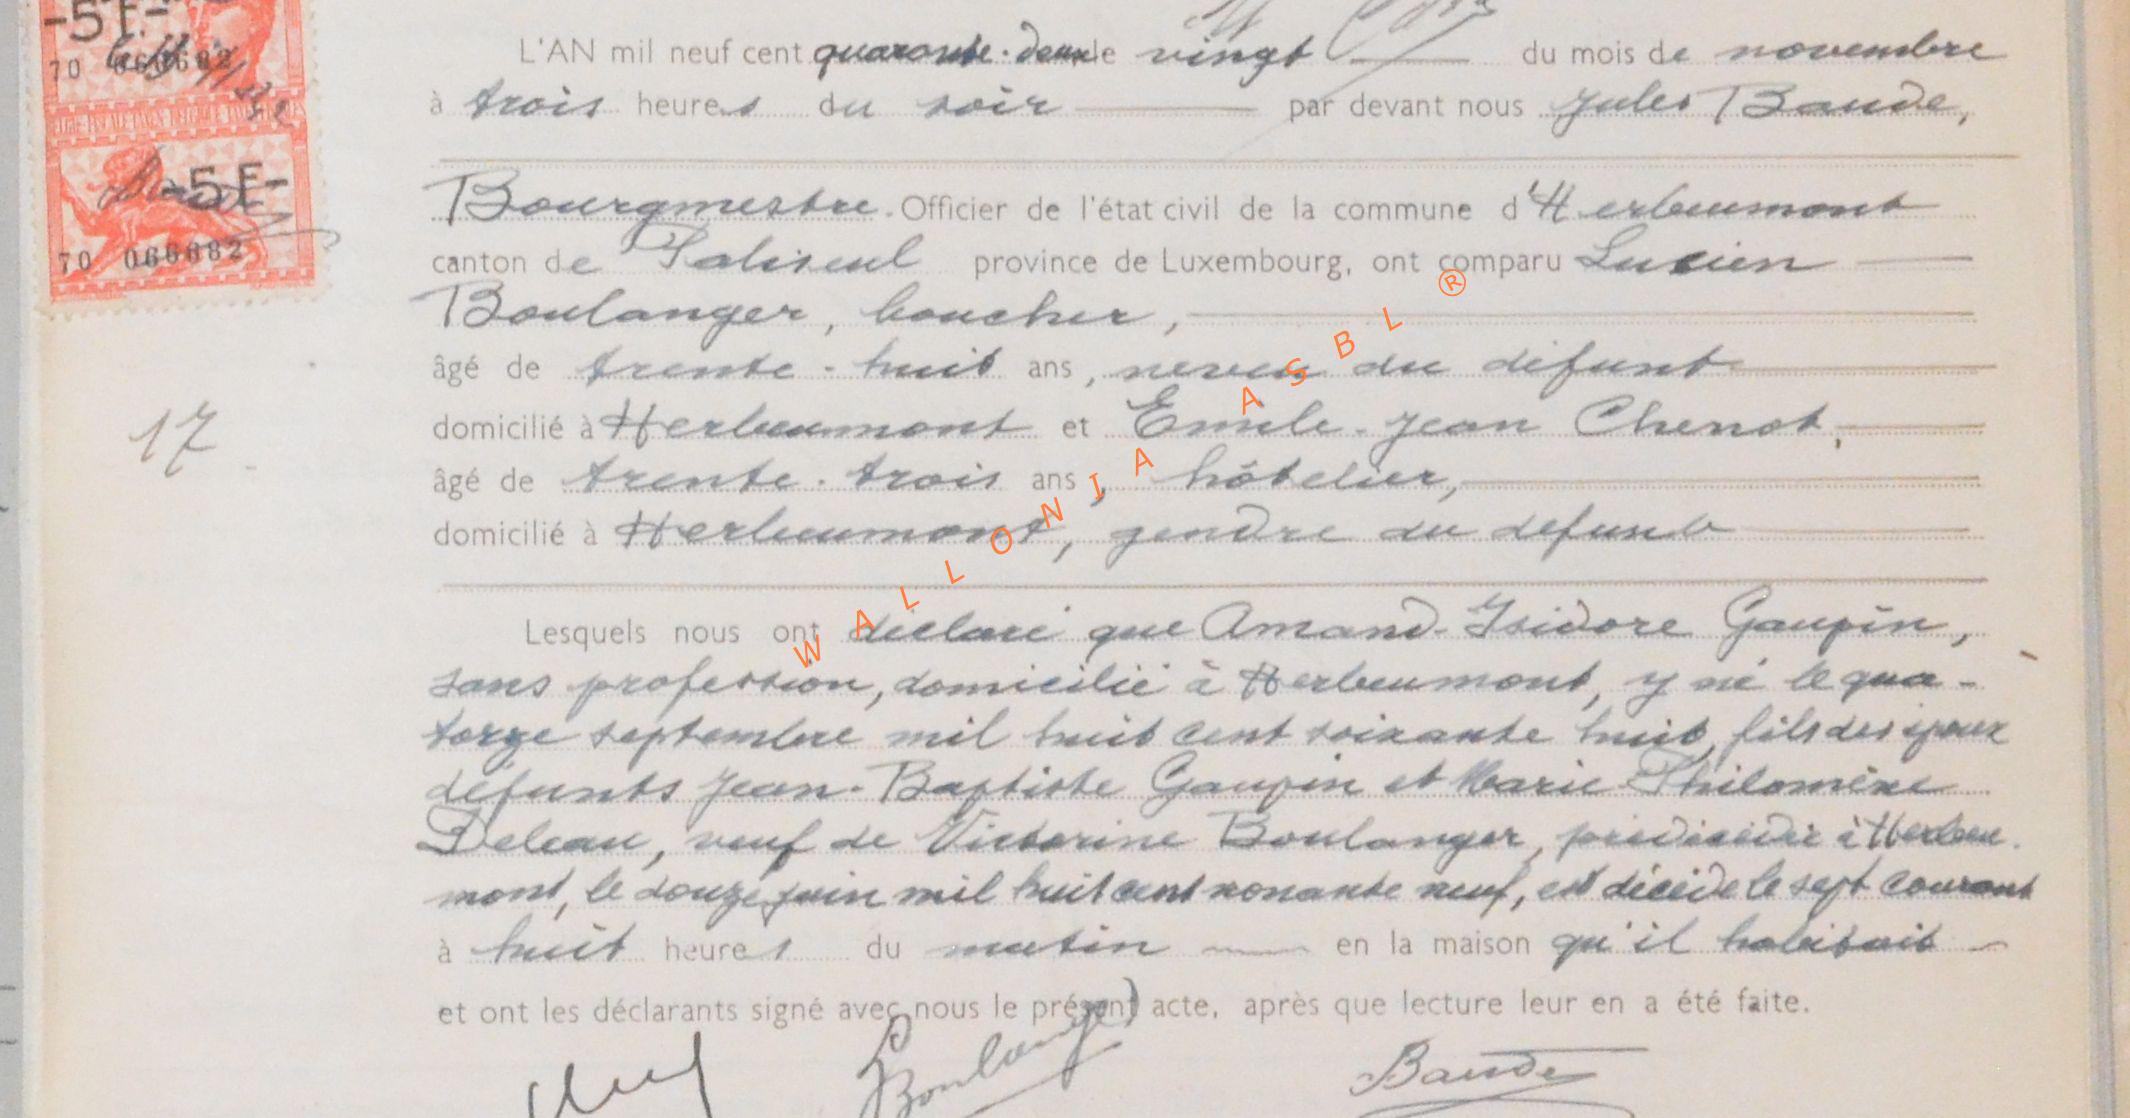 -5 F.-
70 066682
-5 F-
70 066682
L'AN mil neuf cent quarante-deux le vingt du mois de novembre
à trois heures du soir par devant nous Jules Baude,
Bourgmestre. Officier de l'état civil de la commune d'Herbeumont
canton de Paliseul province de Luxembourg, ont comparu Lucien
Boulanger, boucher,
âgé de trente-huit ans, neveu du défunt
domicilié à Herbeumont et Emile-Jean Chenot,
âgé de trente-trois ans, hôtelier,
domicilié à Herbeumont, gendre du défunt
17
Lesquels nous ont déclaré que Amand-Isidore Gaupin,
sans profession, domicilié à Herbeumont, y né le qua-
torze septembre mil huit cent soixante huit, fils des époux
défunts Jean-Baptiste Gaupin et Marie Philomène
Deleau, veuf de Victorine Boulanger, prédécédée à Herbeu-
mont, le douze juin mil huit cent nonante neuf, est décédé le sept courant
à huit heures du matin en la maison qu'il habitait
et ont les déclarants signé avec nous le présent acte, après que lecture leur en a été faite.
Boulanger
Baude
WALLONIA ASBL ®